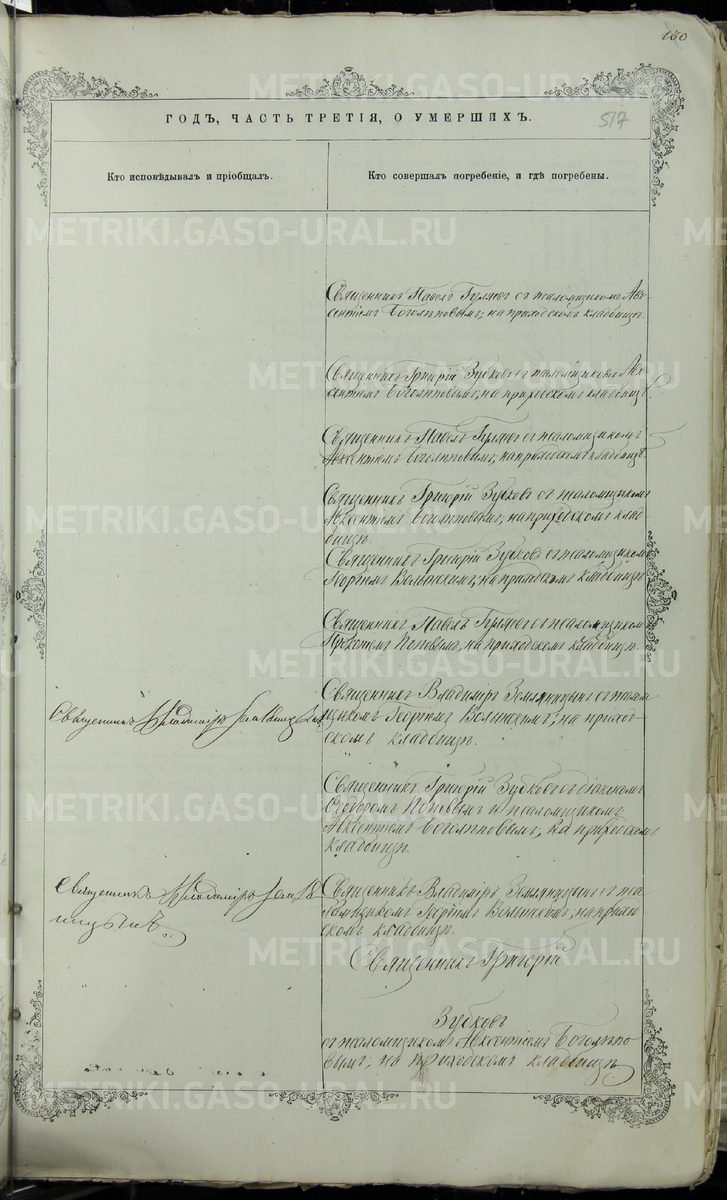 160
517
ГОДЪ, ЧАСТЬ ТРЕТІЯ, О УМЕРШИХЪ.
Кто исповѣдывалъ и пріобщалъ.
Кто совершалъ погребеніе, и гдѣ погребены.
Священникъ Павелъ Гуляевъ съ псаломщикомъ Ав-
ксентіемъ Боголѣповымъ, на приходскомъ кладбищѣ.
Священникъ Григорій Зубковъ съ псаломщикомъ Ав-
ксентіемъ Боголѣповымъ, на приходскомъ кладбищѣ.
Священникъ Павелъ Гуляевъ съ псаломщикомъ
Авксентіемъ Боголѣповымъ, на приходскомъ кладбищѣ.
Священникъ Григорій Зубковъ съ псаломщикомъ
Авксентіемъ Боголѣповымъ, на приходскомъ клад-
бищѣ.
Священникъ Григорій Зубковъ съ псаломщикомъ
Волынскимъ, на приходскомъ кладбищѣ.
Священникъ Павелъ Гуляевъ съ псаломщикомъ
Поповымъ, на приходскомъ кладбищѣ.
Священникъ Владиміръ Земляницынъ
Священникъ Владиміръ Земляницынъ съ псалом-
щикомъ Георгіемъ Волынскимъ, на приход-
скомъ кладбищѣ.
Священникъ Григорій Зубковъ съ діакономъ
Ѳеодоромъ Поповымъ и псаломщикомъ
Авксентіемъ Боголѣповымъ, на приходскомъ
кладбищѣ.
Священникъ Владиміръ Земля-
ницынъ
Священникъ Владиміръ Земляницынъ съ пса-
ломщикомъ Георгіемъ Волынскимъ, на приход-
скомъ кладбищѣ.
Священникъ Григорій
Зубковъ
съ псаломщикомъ Авксентіемъ Боголѣпо-
вымъ, на приходскомъ кладбищѣ
METRIKI.GASO-URAL.RU